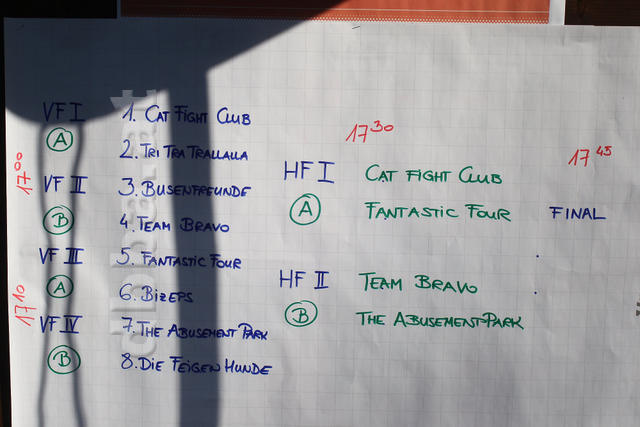 VF I 1. CAT FIGHT CLUB
A
2. TRI TRA TRALLALLA
17⁰⁰
VF II 3. BUSENFREUNDE
B 4. TEAM BRAVO
VF III 5. FANTASTIC FOUR
A 6. BIZEPS
17¹⁰
VF IV 7. THE ABUSEMENT PARK
B 8. DIE FEIGEN HUNDE
17³⁰
HF I CAT FIGHT CLUB
A FANTASTIC FOUR
HF II TEAM BRAVO
B THE ABUSEMENT-PARK
17⁴⁵
FINAL